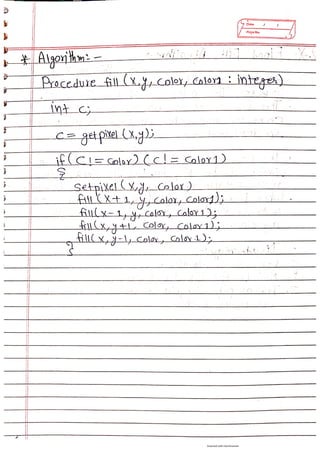 Date / /
Page No.
* Algorithm:-
Procedure fill (x,y, color, color1 : integer)
int c;
c = getpixel (x,y);
if (c != color) (c != color1)
{
setpixel (x,y, color)
fill (x+1, y, color, color1);
fill(x-1, y, color, color1);
fill(x, y+1, color, color1);
fill(x, y-1, color, color1);
}